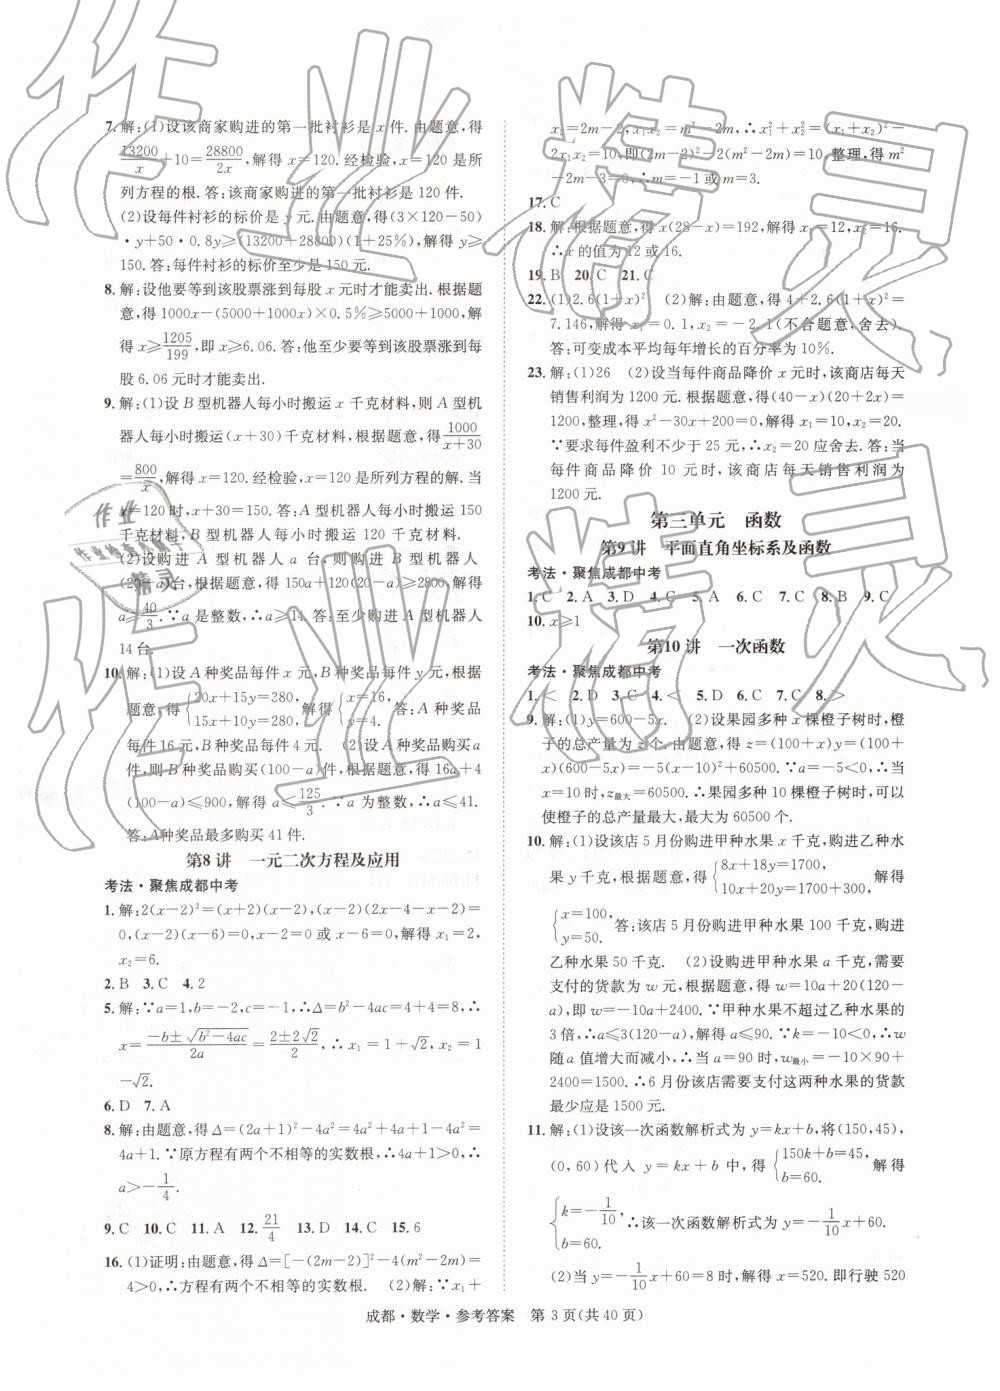 7. 解:(1)设该商家购进的第一批衬衫是 x 件. 由题意,得
13200/x+10=28800/2x,解得 x=120. 经检验,x=120 是所
列方程的根. 答:该商家购进的第一批衬衫是 120 件.
(2)设每件衬衫的标价是 y 元. 由题意,得(3×120-50)
·y+50·0.8y≥(13200+28800)(1+25%),解得 y≥
150. 答:每件衬衫的标价至少是 150 元.
8. 解:设他要等到该股票涨到每股 x 元时才能卖出. 根据题
意,得 1000x-(5000+1000x)×0.5%≥5000+1000,解
得 x≥1205/199,即 x≥6.06. 答:他至少要等到该股票涨到每
股 6.06 元时才能卖出.
9. 解:(1)设 B 型机器人每小时搬运 x 千克材料,则 A 型机
器人每小时搬运(x+30)千克材料,根据题意,得1000/x+30
=800/x,解得 x=120. 经检验,x=120 是所列方程的解. 当
x=120 时,x+30=150. 答:A 型机器人每小时搬运 150
千克材料,B 型机器人每小时搬运 120 千克材料.
(2)设购进 A 型机器人 a 台,则购进 B 型机器人
(20-a)台,根据题意,得 150a+120(20-a)≥2800,解得
a≥40/3.∵a 是整数,∴a≥14. 答:至少购进 A 型机器人
14 台.
10. 解:(1)设 A 种奖品每件 x 元,B 种奖品每件 y 元,根据
题意,得{20x+15y=280, 15x+10y=210,解得{x=16, y=4.答:A 种奖品
每件 16 元,B 种奖品每件 4 元. (2)设 A 种奖品购买 a
件,则 B 种奖品购买(100-a)件,根据题意,得 16a+4
(100-a)≤900,解得 a≤125/3.∵a 为整数,∴a≤41.
答:A种奖品最多购买 41 件.
第8讲 一元二次方程及应用
考法·聚焦成都中考
1. 解:2(x-2)²=(x+2)(x-2),(x-2)(2x-4-x-2)=
0,(x-2)(x-6)=0,x-2=0 或 x-6=0,解得 x₁=2,
x₂=6.
2. B 3. C 4. 2
5. 解:∵a=1,b=-2,c=-1,∴Δ=b²-4ac=4+4=8,∴
x=-b±√b²-4ac/2a=2±2√2/2,∴x₁=1+√2,x₂=1
-√2.
6. D 7. A
8. 解:由题意,得 Δ=(2a+1)²-4a²=4a²+4a+1-4a²=
4a+1.∵原方程有两个不相等的实数根,∴4a+1>0,∴
a>-1/4.
9. C 10. C 11. A 12. 21/4 13. D 14. C 15. 6
16. (1)证明:由题意,得 Δ=[-(2m-2)]²-4(m²-2m)=
4>0,∴方程有两个不相等的实数根. (2)解:∵x₁+
x₂=2m-2,x₁x₂=m²-2m,∴x₁²+x₂²=(x₁+x₂)²-
2x₁x₂=10,即(2m-2)²-2(m²-2m)=10.整理,得 m²
-2m-3=0,∴m=-1 或 m=3.
17. C
18. 解:根据题意,得 x(28-x)=192,解得 x₁=12,x₂=16.
∴x 的值为 12 或 16.
19. B 20. C 21. C
22. (1)2.6(1+x)² (2)解:由题意,得 4+2.6(1+x)²=
7.146,解得 x₁=0.1,x₂=-2.1(不合题意,舍去).
答:可变成本平均每年增长的百分率为 10%.
23. 解:(1)26 (2)设当每件商品降价 x 元时,该商店每天
销售利润为 1200 元. 根据题意,得(40-x)(20+2x)=
1200,整理,得 x²-30x+200=0,解得 x₁=10,x₂=20.
∵要求每件盈利不少于 25 元,∴x₂=20 应舍去. 答:当
每件商品降价 10 元时,该商店每天销售利润为
1200 元.
第三单元 函数
第9讲 平面直角坐标系及函数
考法·聚焦成都中考
1. C 2. A 3. D 4. C 5. A 6. C 7. C 8. B 9. C
10. x≥1
第10讲 一次函数
考法·聚焦成都中考
1. < 2. D 3. C 4. < 5. D 6. C 7. C 8. >
9. 解:(1)y=600-5x. (2)设果园多种 x 棵橙子树时,橙
子的总产量为 z 个. 由题意,得 z=(100+x)y=(100+
x)(600-5x)=-5(x-10)²+60500.∵a=-5<0,∴当
x=10 时,z最大=60500.∴果园多种 10 棵橙子树时,可以
使橙子的总产量最大,最大为 60500 个.
10. 解:(1)设该店 5 月份购进甲种水果 x 千克,购进乙种水
果 y 千克,根据题意,得{8x+18y=1700, 10x+20y=1700+300,解得
{x=100, y=50.答:该店 5 月份购进甲种水果 100 千克,购进
乙种水果 50 千克. (2)设购进甲种水果 a 千克,需要
支付的货款为 w 元,根据题意,得 w=10a+20(120-
a),即 w=-10a+2400.∵甲种水果不超过乙种水果的
3 倍,∴a≤3(120-a),解得 a≤90.∵k=-10<0,∴w
随 a 值增大而减小,∴当 a=90 时,w最小=-10×90+
2400=1500.∴6 月份该店需要支付这两种水果的货款
最少应是 1500 元.
11. 解:(1)设该一次函数解析式为 y=kx+b,将(150,45),
(0,60)代入 y=kx+b 中,得{150k+b=45, b=60.解得
{k=-1/10, b=60.∴该一次函数解析式为 y=-1/10x+60.
(2)当 y=-1/10x+60=8 时,解得 x=520. 即行驶 520
成都·数学·参考答案 第 3 页(共 40 页)
作业精灵
精灵
作业
作业检查小助手
精灵